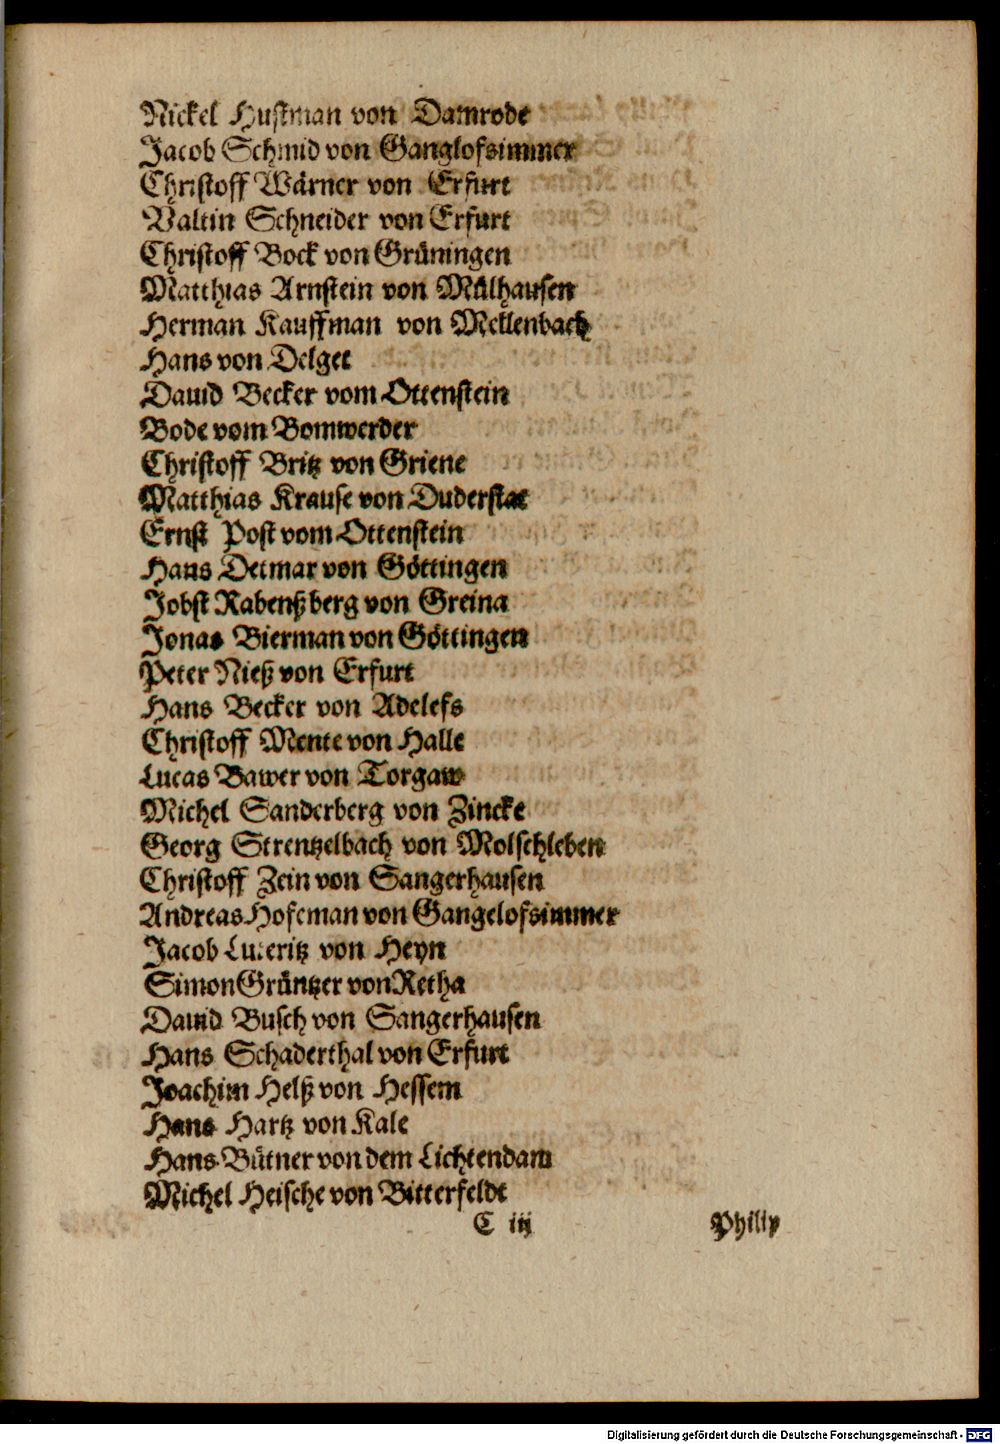 Nickel Hustman von Damrode
Jacob Schmid von Ganglofsimmer
Christoff Wärner von Erfurt
Valtin Schneider von Erfurt
Christoff Bock von Grüningen
Matthias Arnstein von Mülhausen
Herman Kauffman von Mellenbach
Hans von Delget
Dauid Becker vom Ottenstein
Bode vom Bomwerder
Christoff Britz von Griene
Matthias Krause von Duderstat
Ernst Post vom Ottenstein
Hans Detmar von Göttingen
Jobst Rabenßberg von Greina
Jonas Bierman von Göttingen
Peter Nieß von Erfurt
Hans Becker von Adelefs
Christoff Mente von Halle
Lucas Bawer von Torgaw
Michel Sanderberg von Zincke
Georg Strentzelbach von Molschleben
Christoff Zein von Sangerhausen
Andreas Hofeman von Gangelofsimmer
Jacob von Heyn
Simon Grüntzer von Retha
Dauid Busch von Sangerhausen
Hans Schaderthal von Erfurt
Joachim Helß von Hessem
Hans Hartz von Kale
Hans Bütner von dem Lichtendam
Michel Heische von Bitterfeldt
C iij Philip
Digitalisierung gefördert durch die Deutsche Forschungsgemeinschaft - DFG